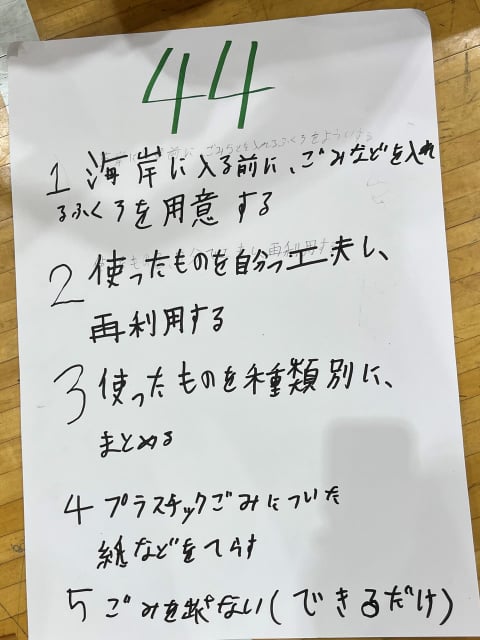 44
1 海岸に入る前に、ごみなどを入れ
るふくろを用意する
2 使ったものを自分っ工夫し、
再利用する
3 使ったものを種類別に、
まとめる
4 プラスチックごみについた
絵などをてらす
5 ごみを出さない(できるだけ)